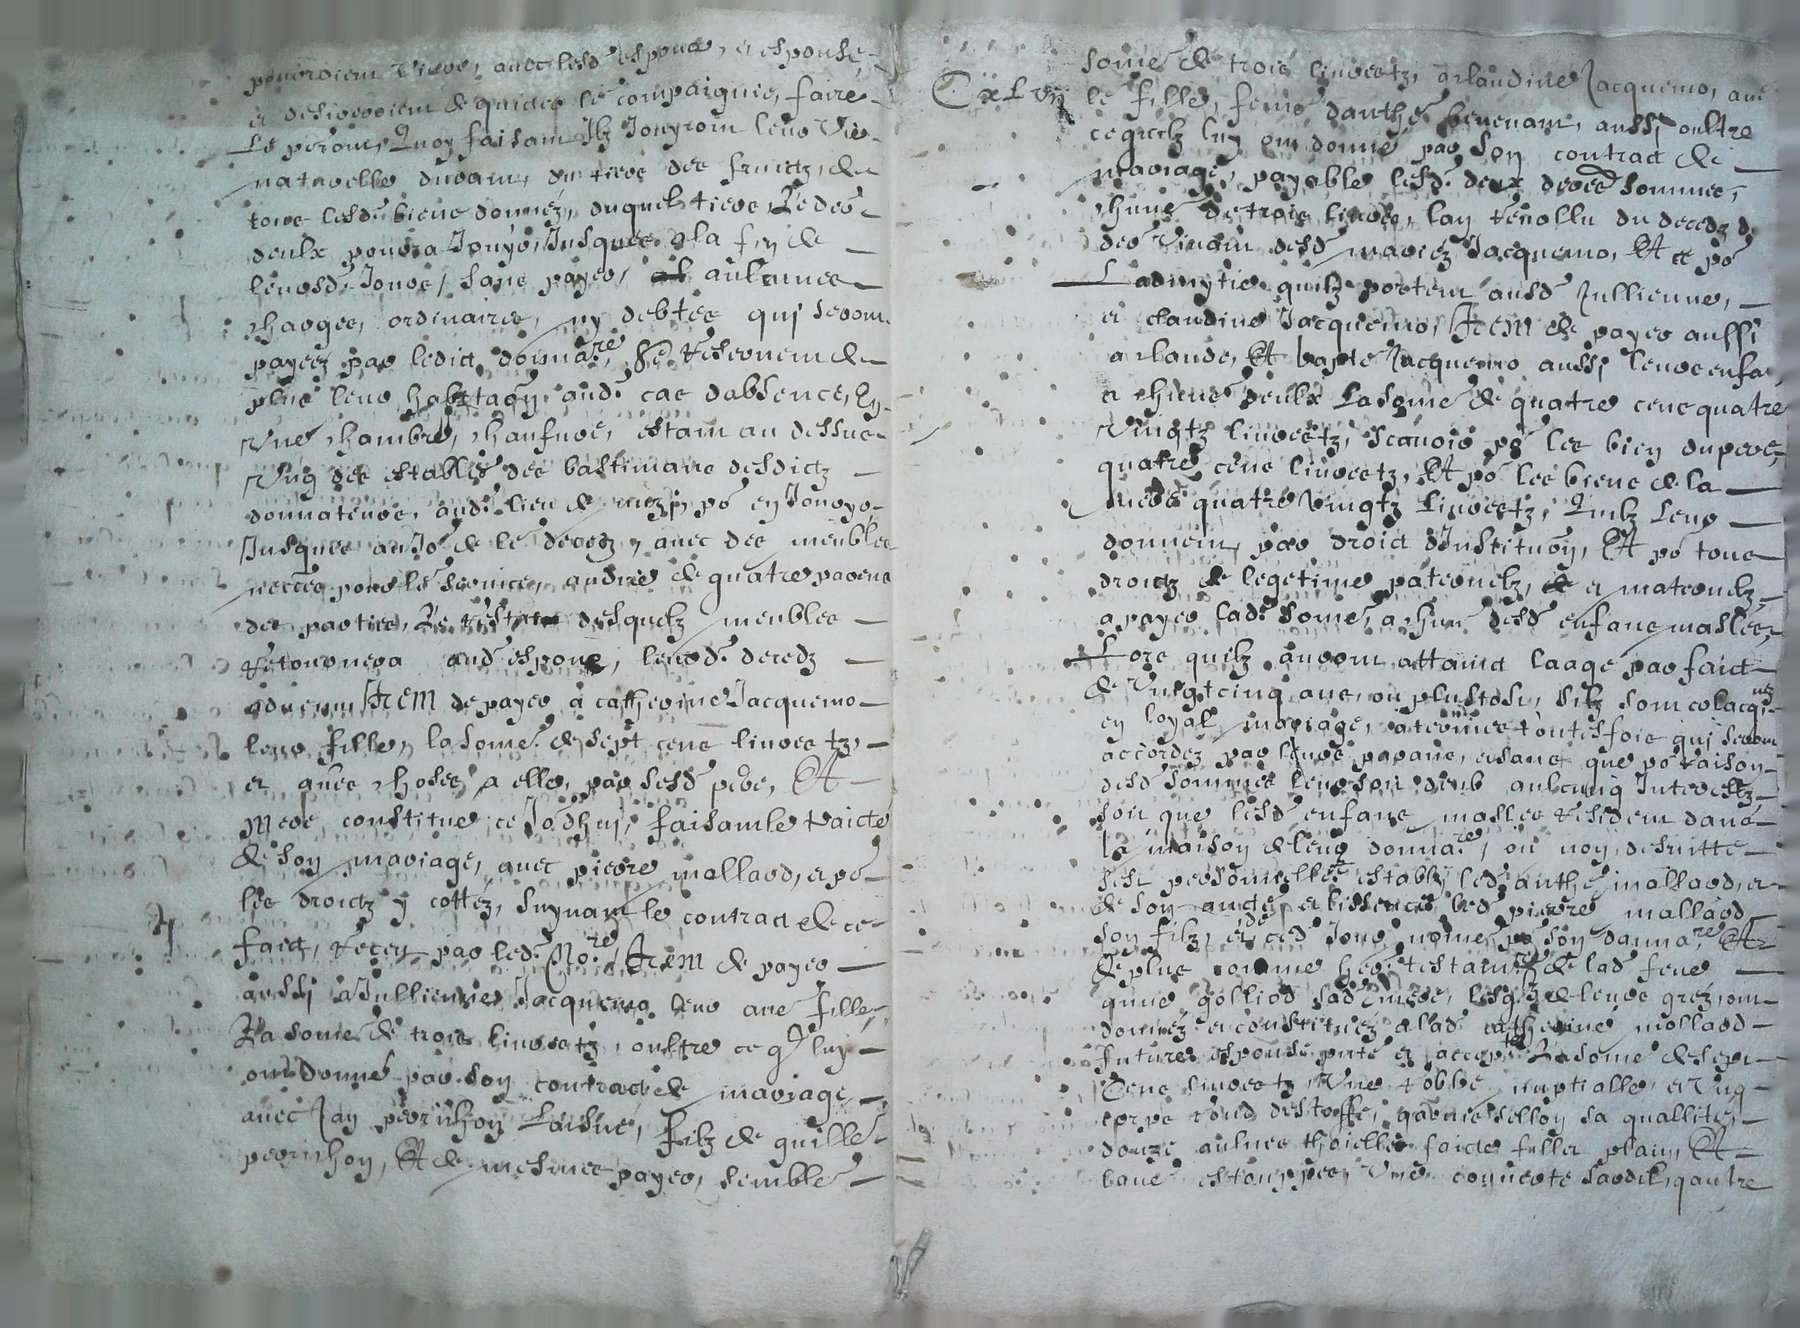 pourroient vivre, avec lesd. espoux, et espouse,
et desireroient de quicter le compaignie, faire
Le peront, Quoy faisant Ilz Jouyront leur vie
naturelle durant, du tiers des fruictz, de
tous lesd. biens donnéz, duquel tiers, Le der
deulx pourra Jouyr, Jusques a la fin de
leursd. Jours, sans payer, aulcunes
charges, ordinaires, ny debtes qui seront
payéez par ledict donnare, Se reservent de
plus leur habitaon, aud. cas dabsence, En
Une chambre, chaufure, estant au dessus
Ung des establés des bastimans desdictz
donnateurs, aud. lieu de mezp, po en Jouyr,
Jusques au Jo de le decedz, avec des meubles
necces pour le service, au dire de quatre parens
des parties, Le reste desquelz meubles
retournera aud espoux, leursd. decedz
advenu Item de payer a catherine Jacquemo
leur fille, la some de sept cens livretz,
et aues choses, a elle, par sesd pere, Et
Mere, constitue ce Jodhuy, faisant le traicté
de son mariage, avec pierre mollard, et po
les droictz y cottéz, suyvant le contract de ce
faict, receu par led. Nore, Item de payer
aussi a Jullienne Jacquemo leur aue fille,
La some de trois livretz, oultre ce q luy
ont donné par son contract de mariage,
avec Jan perrichon Laisné, filz de guille
perrichon, Et de mesmes payer, semble
some de trois livretz, a claudine Jacquemo, aue
CxLvij
le fille, feme danthe benenant, aussi oultre
ce quelz luy ont donné par son contract de
mariage, payable lesd. deux deres sommes,
chune de trois livres, lan revollu du decedz d
der vivant desd mariez Jacquemo, Et ce po
Ladmytie quilz portent ausd Jullienne,
et claudine Jacquemo, Item de payer aussi
a claude, Et bapte Jacquemo aussi leurs enfa
a chune deulx La some de quatre cens quatre
Vingtz livretz, scavoir po les bien du pere,
quatre cens livretz, Et po les biens de la
mere quatre Vingtz Livretz, Quilz Leur
donnent, par droict dInstitution, Et po tous
droictz de legetime paternelz, et maternelz,
a payer lad. some, a chun desd enfans masles,
Lors quilz auront attainct laage parfaict
de Vingtcinq ans, ou plustost, silz sont colacques
en loyal mariage, a termes toutesfois qui seront
accordez par leurs parans, et sans que po raison
desd sommes leur soit deub aulcung Interestz,
soit que lesd enfans masles resident dans
la maison de leur donnare, ou non, desuitte
sest personnelles estably led. anthe mollard, et
de son aucté et lissence led pierre mollard
son filz, et ced Jour nomé po son donnare, Et
de plus comme heo testamre de lad feue
aune golliod sad mere, lesqlz de leurs grez, ont
donnéz et constituéz a lad catherine mollard
future espouse pnte et accept La some de sept
Cens livretz, Une robbe nuptialle, et Ung
corps dud destoffe, garnie sellon sa quallité,
douze aulnes thoielle faicte filler plain, Et
bans estouppes, Une couverte sardil, quatre